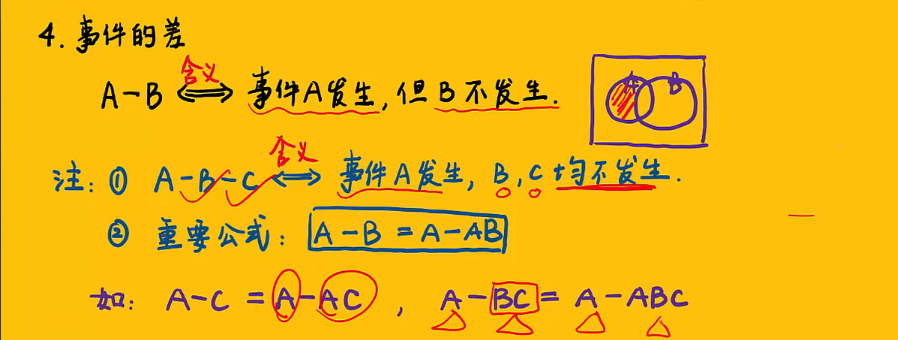 4. 事件的差
含义
A-B ⟺ 事件A发生,但B不发生.
A B
含义
注: ① A-B-C ⟺ 事件A发生, B,C均不发生.
② 重要公式: A-B=A-AB
如: A-C=A-AC , A-BC=A-ABC